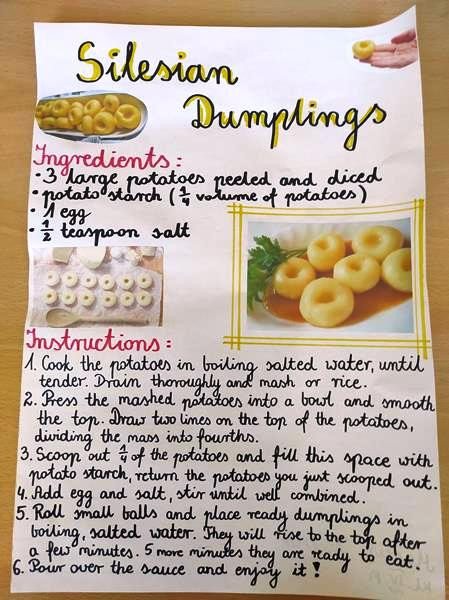 Silesian
Dumplings
Ingredients:
• 3 large potatoes peeled and diced
• potato starch (1/4 volume of potatoes)
• 1 egg
• 1/2 teaspoon salt
Instructions:
1. Cook the potatoes in boiling salted water, until
tender. Drain thoroughly and mash or rice.
2. Press the mashed potatoes into a bowl and smooth
the top. Draw two lines on the top of the potatoes,
dividing the mass into fourths.
3. Scoop out 1/4 of the potatoes and fill this space with
potato starch, return the potatoes you just scooped out.
4. Add egg and salt, stir until well combined.
5. Roll small balls and place ready dumplings in
boiling, salted water. They will rise to the top after
a few minutes. 5 more minutes they are ready to eat.
6. Pour over the sauce and enjoy it!